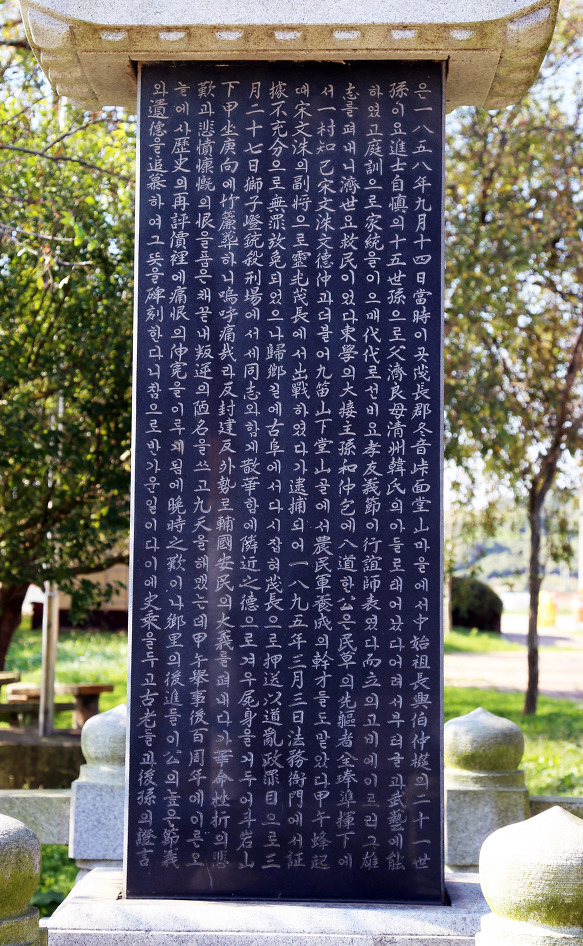 은一八五八年九月十四日當時이곳茂長郡冬音峙面堂山마을에서中始祖長興伯仲模의二十一世
孫이요進士自愼의十五世孫으로父濟良母淸州韓氏의아들로태어났다어려서부터글과武藝에能
하였고庭訓으로家統을이으매代代로선비요孝友義節이行誼師表였다而立의고비에이르러그雄
志를펴내니濟世요救民이었다東學의大接主孫和仲包에入道한公은民草의先驅者全琫準揮下에
서一村知己宋文洙文德仲과더불어九笛山下堂山골에서農民軍養成의幹才들도맡았다甲午蜂起
때宋文洙의副將으로靈光茂長에서出戰하였다가逮捕되어一八九五年三月三日法務衙門에서証
據不充分으로無罪放免되었으나歸鄕길에古阜에서다시잡혀茂長으로押送以道亂政罪目으로三
月二十七日獅子燈銃殺刑場에서세同志와함께散華함에隣近之德으로겨우屍身을거두어斗岩山
下甲坐庚向에竹簾葬하니嗚呼痛哉라反封建反外勢로輔國安民의大義를펴내다가革命挫折의悲
歎과悲憤慷慨의恨을품은채끝내叛逆의陋名을쓰고九天을헤맸는데甲午擧事後百周年에이른오
늘에사歷史의再評價裡에痛恨의伸寃을이루게됨에晩時之歎이나鄕里의後進들이公의높은節義
와遺德을追慕하여그뜻을碑刻한다니참으로반가운일이다이에史乘을두고古老들과後孫의證言